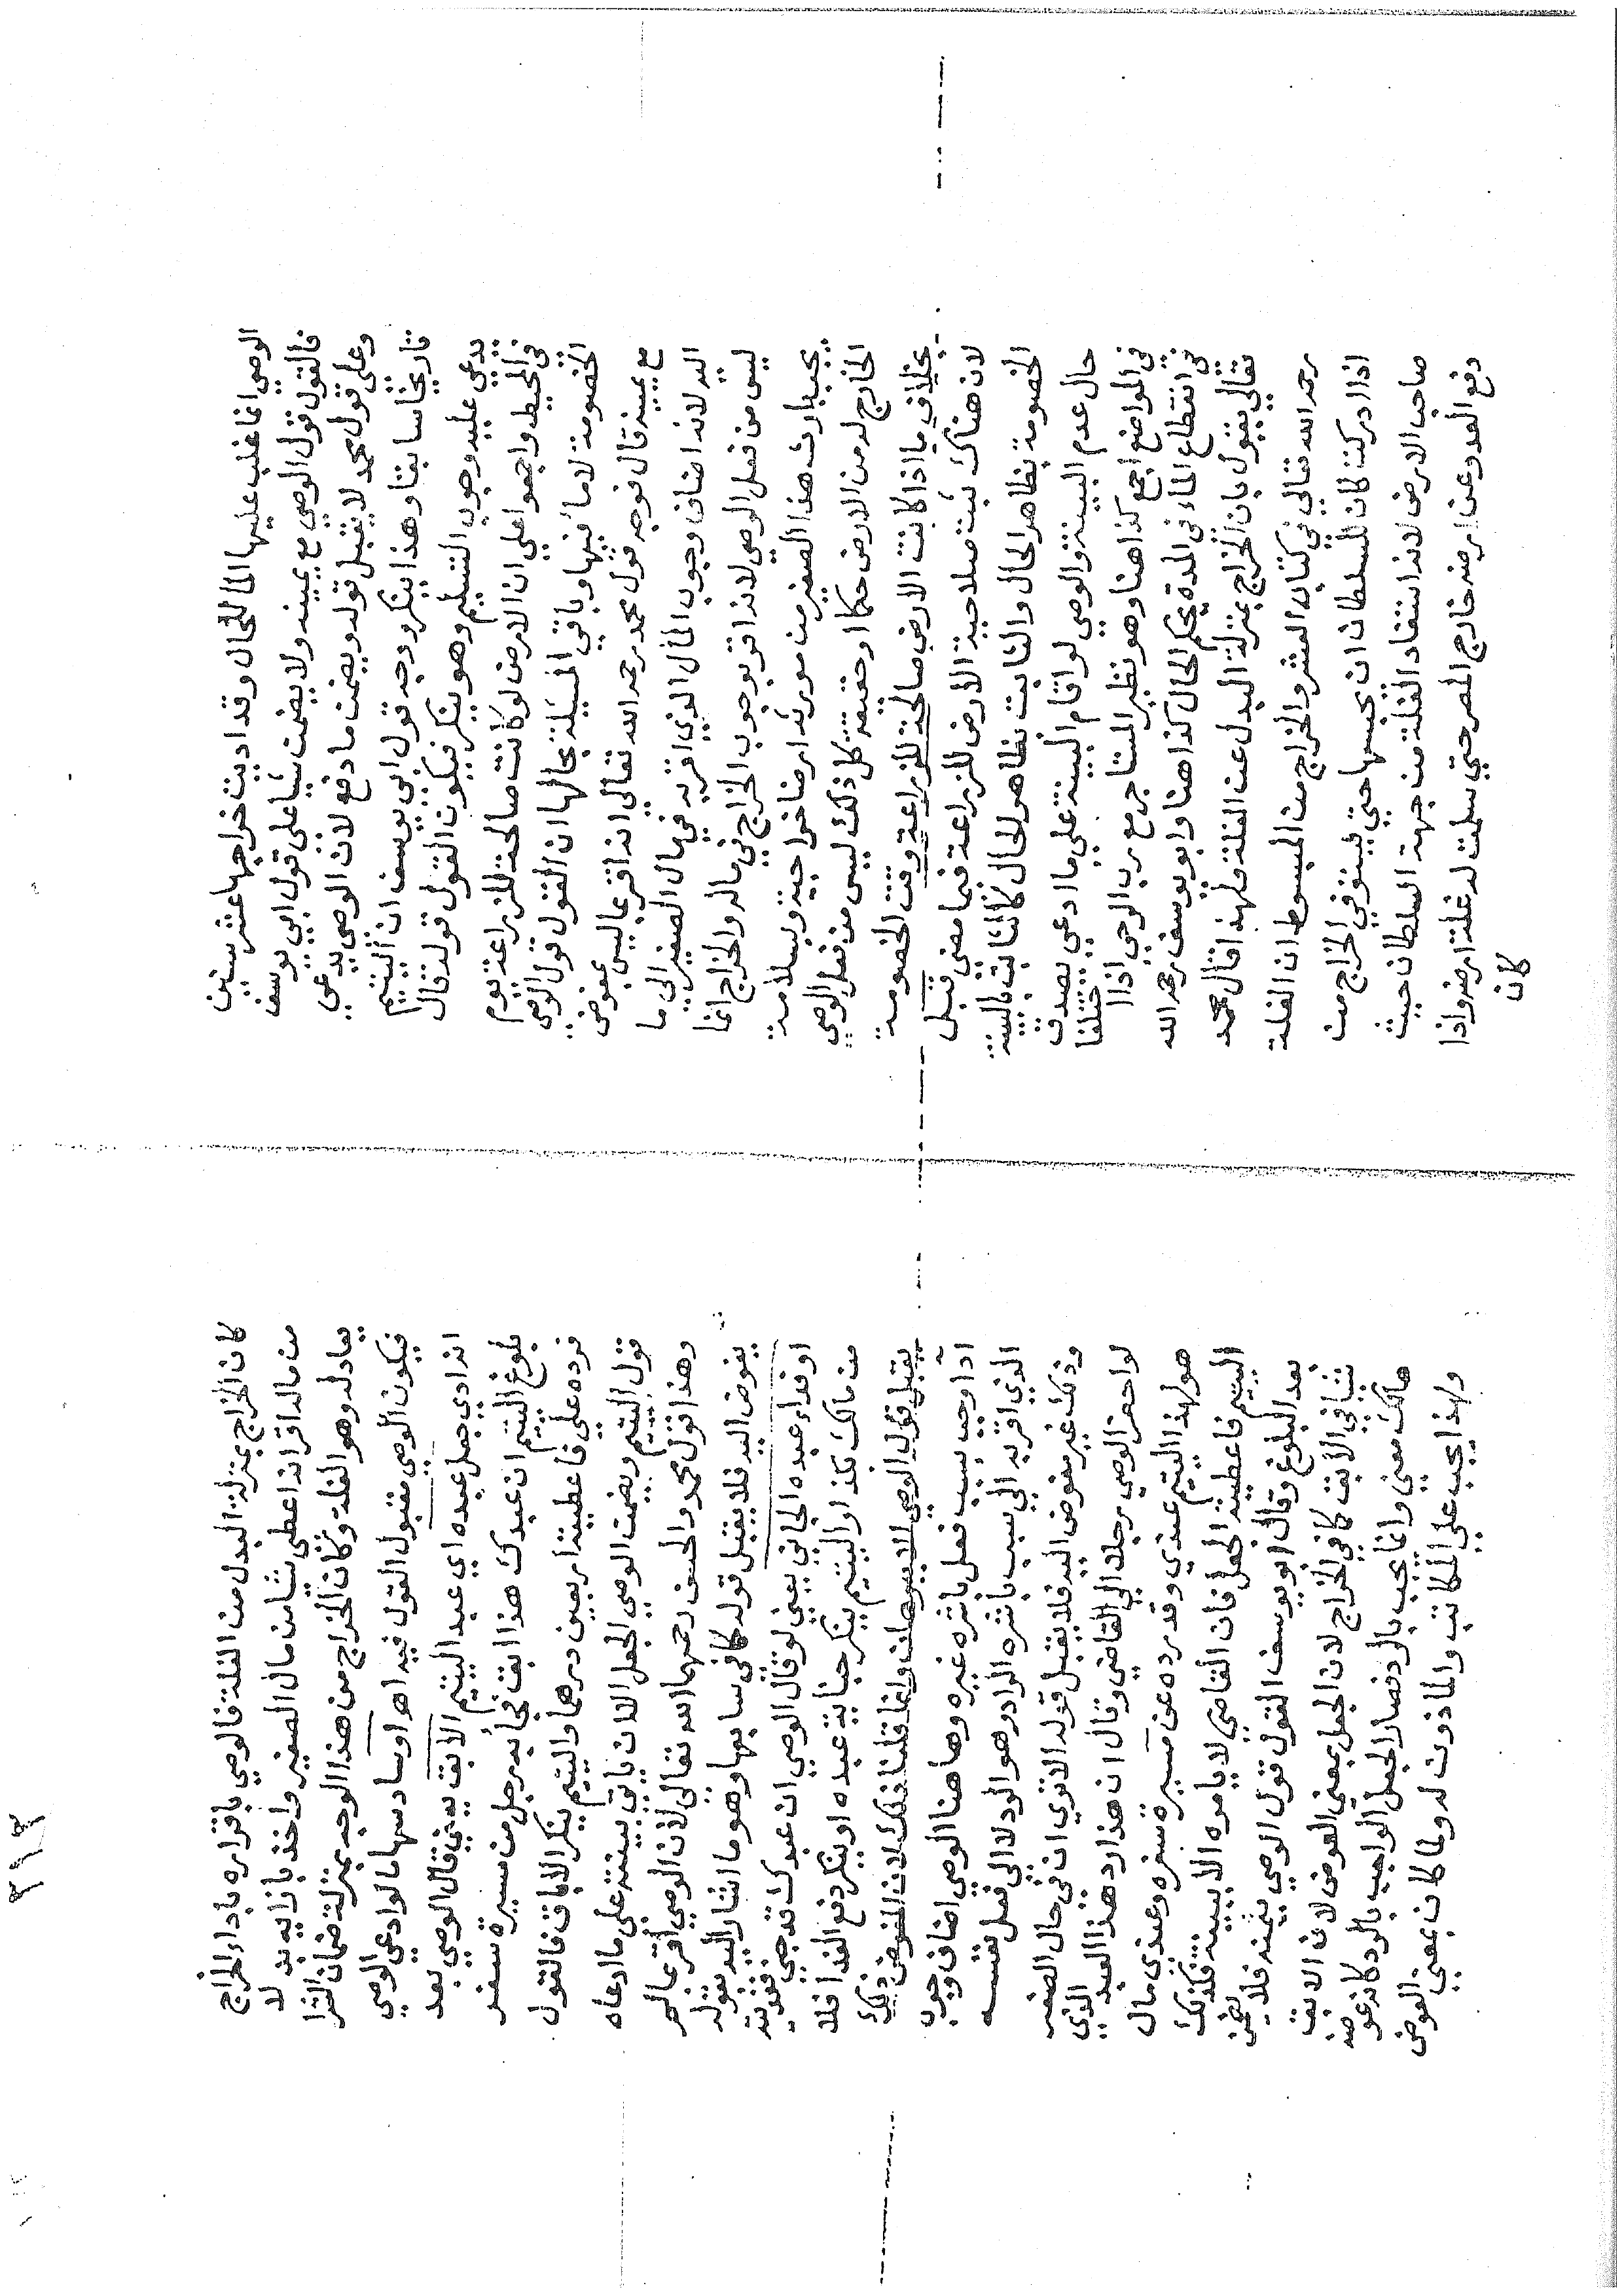 الوصي انما غلب عليها الما للحال وقد اديت خراجها عشر سنين
فالقول قول الوصي مع يمينه ولا يضمن شيا على قول ابي يوسف
وعلى قول محمد لا يقبل قوله ويضمن ما دفع لان الوصي يدعي
تاريخا سابقا وهذا ينكر وجه قول ابي يوسف ان اليتيم
يدعي عليه وجوب التسليم وهو ينكر فيكون القول قوله قال
في المحيط واجمعوا على ان الارض لو كانت صالحة للزراعة يوم
الخصومة لا ما فيها وباقي المسئلة بحالها ان القول قول الوصي
مع يمينه قال فوجه قول محمد رحمه الله تعالى انه اقر بما ليس بمفوض
اليه لانه اضاف وجوب المال الذي اقر به في مال الصغير الى ما
ليس من فعل الوصي لانه اقر بوجوب الخراج في ماله والخراج انما
يجب بارث هذا الصغير من مورثه ارضا خراجية وبسلامة
الخارج له من الارض حكما او حقيقة كل ذلك ليس من فعل الوصي
بخلاف ما اذا كانت الارض صالحة للزراعة وقت الخصومة
لان هناك ثبت صلاحية الارض للزراعة فيما مضى قبل
الخصومة بظاهر الحال والثابت بظاهر الحال كالثابت بالبينة
حال عدم البينة والوصي لو اقام البينة على ما ادعى يصدق
في المواضع اجمع كذا هنا وهو نظير المستاجر مع رب الرحى اذا اختلفا
في انقطاع الماء في المدة يحكم الحال كذا هنا وابو يوسف رحمه الله
تعالى يقول بان الخراج بمنزلة البدل عن الغلة فلهذا قال محمد
رحمه الله تعالى في كتاب العشر والخراج من المبسوط ان الغلة
اذا ادركت كان للسلطان ان يحبسها حتى يستوفي الخراج من
صاحب الارض لانه استفاد الغلة من جهة السلطان حيث
دفع العدو عن ارضه خارج المصر حتى سلمت له غلة ارضه واذا
كان
٢١٢
كان الخراج بمنزلة البدل من الغلة فالوصي باقراره باداء الخراج
من ماله اقر انه اعطى شيا من مال الصغير واخذ بازايه بدلا
يعادله وهو الغلة وكان الخراج من هذا الوجه بمنزلة ضمان الشرا
فيكون الوصي مقبول القول فيه اهـ او سادسها ما لو ادعى الوصي
انه ادى جعل عبده اي عبد اليتيم الابق يعني قال الوصي بعد
بلوغ اليتيم ان عبدك هذا ابق فجا به رجل من مسيرة سفر
فرده علي فاعطيته اربعين درهما واليتيم ينكر الاباق فالقول
قول اليتيم ويضمن الوصي الجعل الا ان ياتي ببينة على ما ادعاه
وهذا قول محمد والحسن رحمهما الله تعالى لان الوصي اقر بما لم
يفوض اليه فلا يقبل قوله كما في سابعها وهو ما اشار اليه بقوله
او فداء عبده الجاني يعني لو قال الوصي ان عبدك قد جنى ففديته
من مالك بكذا واليتيم ينكر جناية عبده او ينكر دفع الفدا فلا
يقبل قول الوصي الا ببرهان وانما قلنا ذلك لان المفوض ذلك
اذا وجب بسبب فعل باشره غيره وهاهنا الوصي اضاف وجوب
الذي اقر به الى سبب باشره الراد وهو الرد لا الى فعل نفسه
وذلك غير مفوض اليه فلا يقبل قوله الا ترى ان في حال الصغر
لو احضر الوصي رجلا الى القاضي وقال ان هذا رد هذا العبد الذي
هو لهذا اليتيم عندي وقد رده عن مسيرة سفره وعندي مال
اليتيم فاعطيه الجعل فان القاضي لا يامره الا ببينة فكذلك
بعد البلوغ وقال ابو يوسف القول قول الوصي بيمينه فلا يضمن
شيا في الابق كما في الخراج لان الجعل بمعنى العوض لان الابق
هالك معنى وانما يجب بالرد فصار الجعل الواجب بالرد كانه عوضه
ولهذا يجب على المكاتب والماذون له ولما كان بمعنى العوض